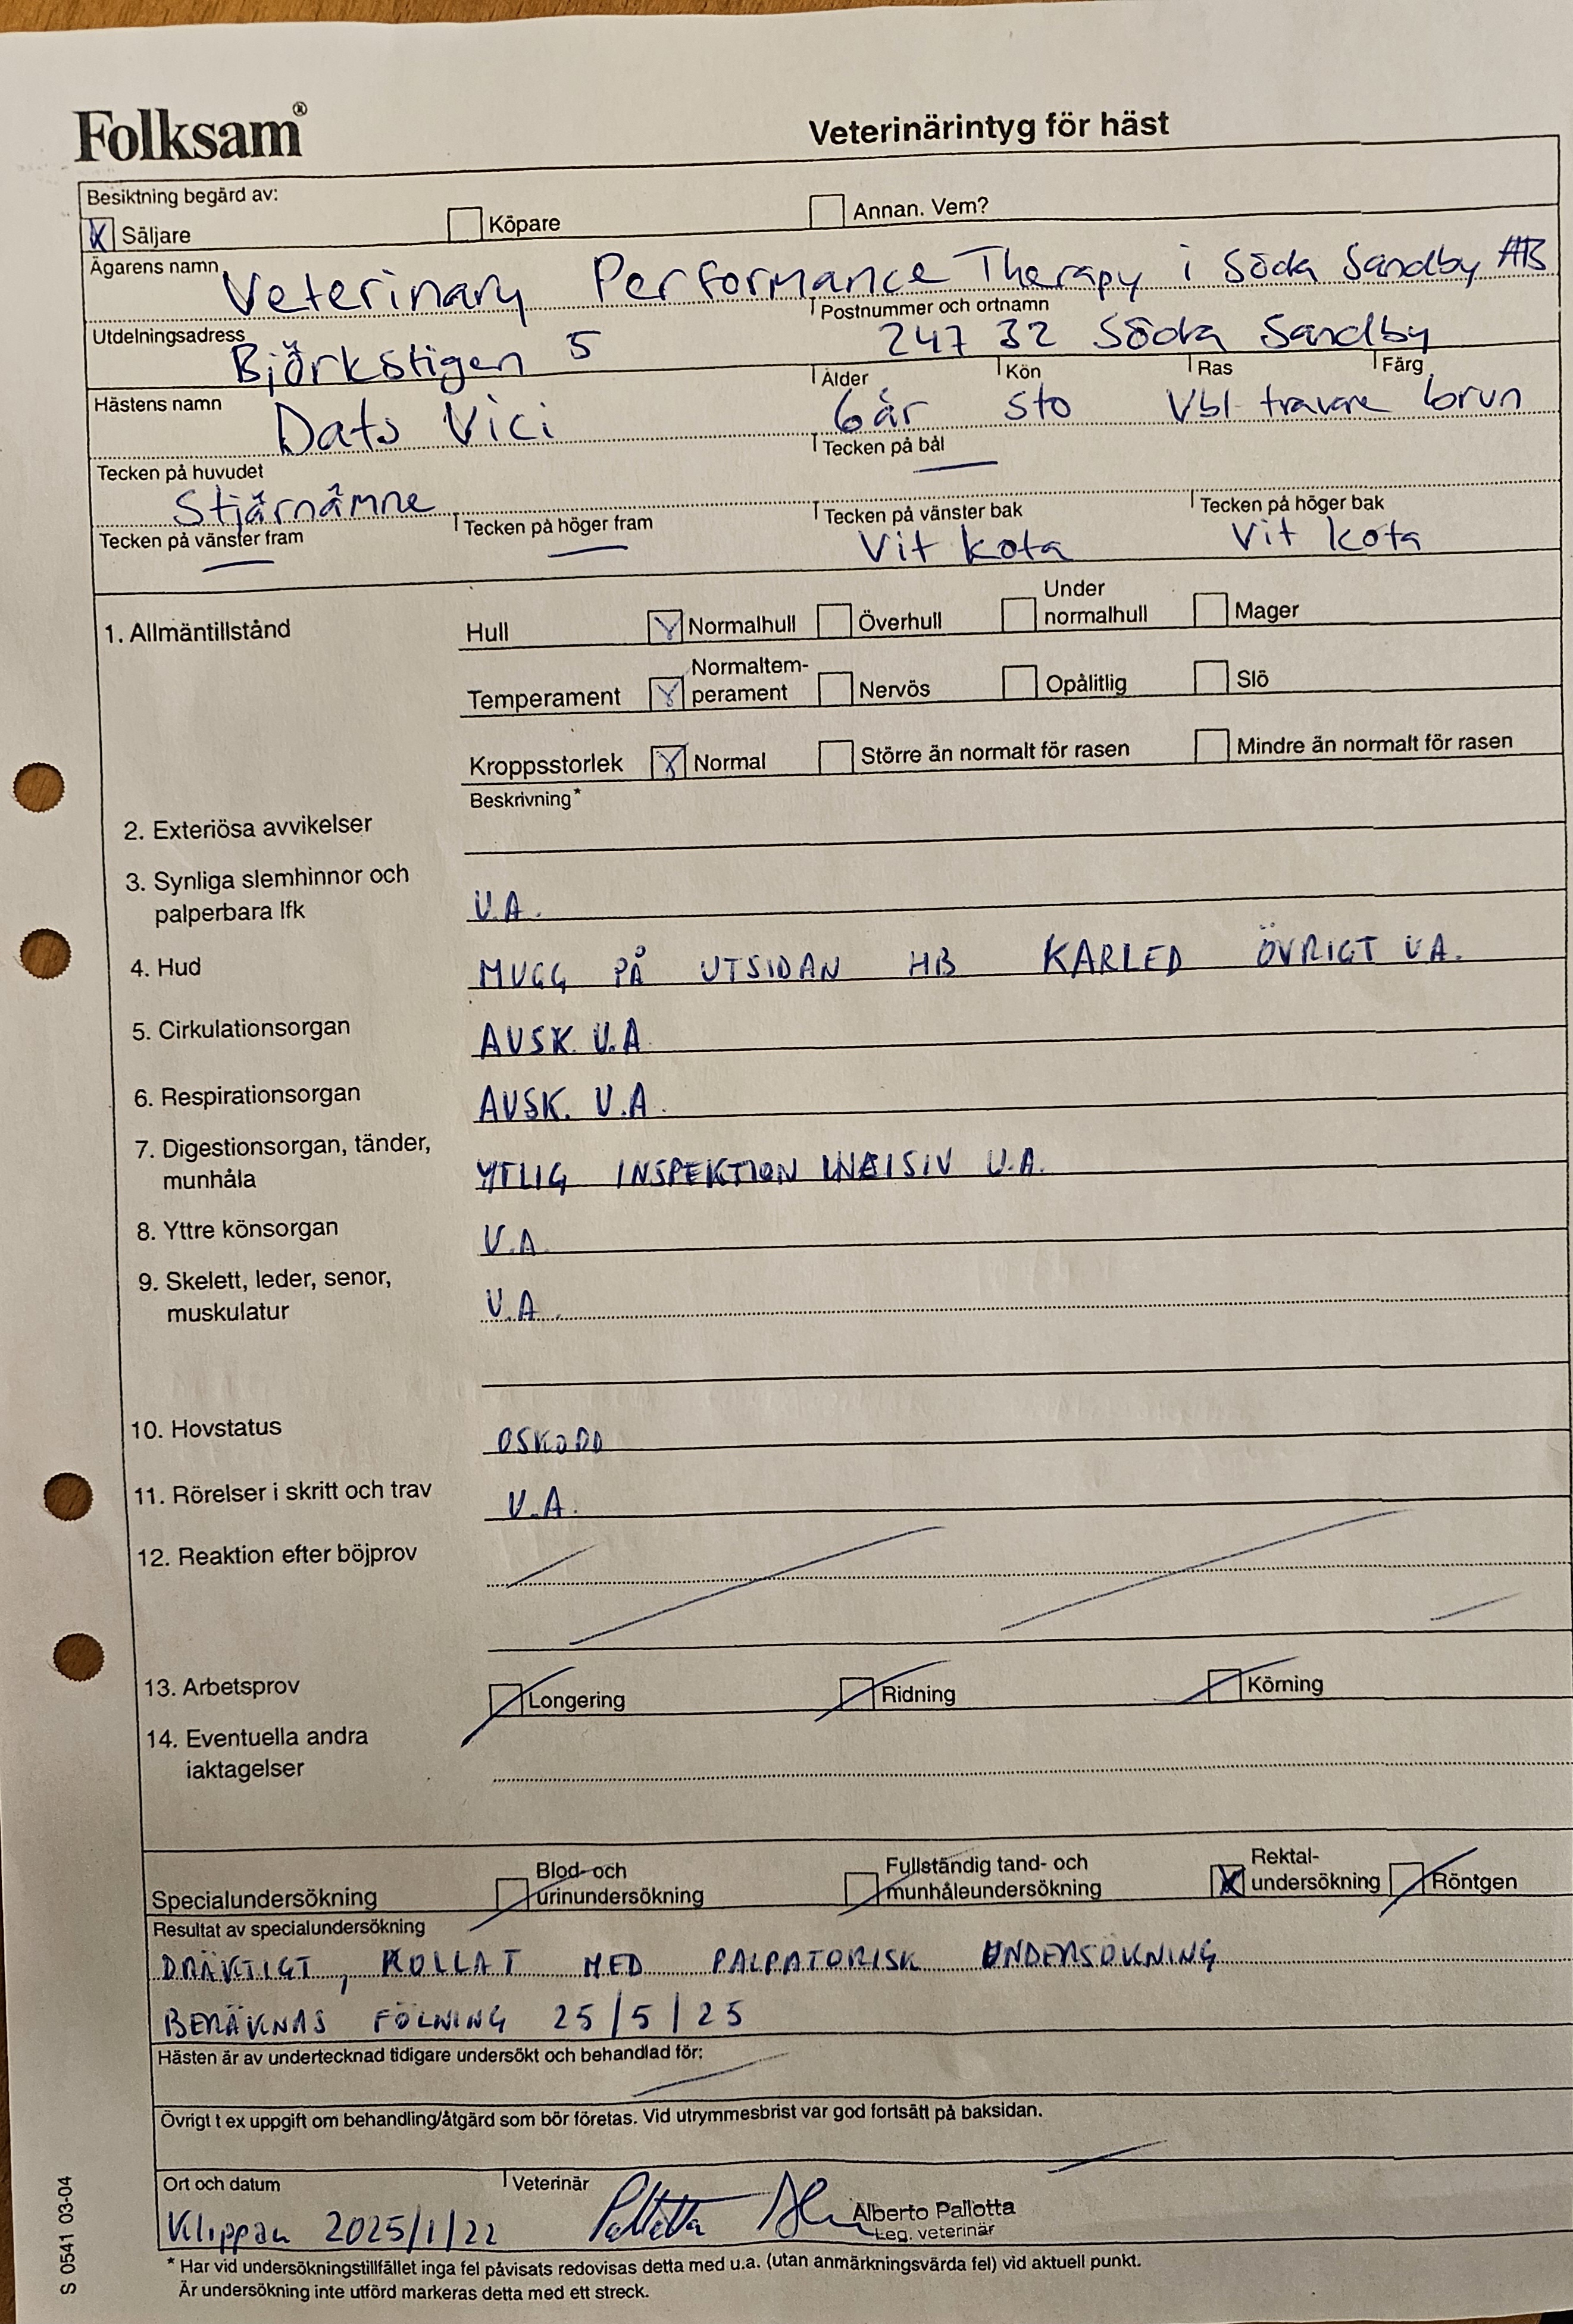 Folksam®
Veterinärintyg för häst
Besiktning begärd av:
X Säljare Köpare Annan. Vem?
Ägarens namn Veterinary Performance Therapy i Södra Sandby AB
Utdelningsadress Björkstigen 5 Postnummer och ortnamn 247 32 Södra Sandby
Hästens namn Dats Vici Ålder 6 år Kön Sto Ras Vbl travare Färg brun
Tecken på huvudet Stjärnämne Tecken på bål —
Tecken på vänster fram — Tecken på höger fram — Tecken på vänster bak Vit kota Tecken på höger bak Vit kota
1. Allmäntillstånd Hull X Normalhull Överhull Under normalhull Mager
Temperament X Normaltem-perament Nervös Opålitlig Slö
Kroppsstorlek X Normal Större än normalt för rasen Mindre än normalt för rasen
Beskrivning*
2. Exteriösa avvikelser
3. Synliga slemhinnor och
palperbara lfk U.A.
4. Hud MUGG PÅ UTSIDAN HB KARLED ÖVRIGT U.A.
5. Cirkulationsorgan AUSK U.A
6. Respirationsorgan AUSK. U.A.
7. Digestionsorgan, tänder,
munhåla YTLIG INSPEKTION U.A.
8. Yttre könsorgan U.A
9. Skelett, leder, senor,
muskulatur U.A.
10. Hovstatus OSKODD
11. Rörelser i skritt och trav U.A.
12. Reaktion efter böjprov
13. Arbetsprov Longering Ridning Körning
14. Eventuella andra
iaktagelser
Specialundersökning Blod- och urinundersökning Fullständig tand- och munhåleundersökning X Rektal-undersökning Röntgen
Resultat av specialundersökning
DRÄKTIGT, KOLLAT MED PALPATORISK UNDERSÖKNING
BERÄKNAS FÖLNING 25/5/25
Hästen är av undertecknad tidigare undersökt och behandlad för:
Övrigt t ex uppgift om behandling/åtgärd som bör företas. Vid utrymmesbrist var god fortsätt på baksidan.
Ort och datum Veterinär
Klippan 2025/1/22 Alberto Pallotta
Leg. veterinär
* Har vid undersökningstillfället inga fel påvisats redovisas detta med u.a. (utan anmärkningsvärda fel) vid aktuell punkt.
Är undersökning inte utförd markeras detta med ett streck.
S 0541 03-04